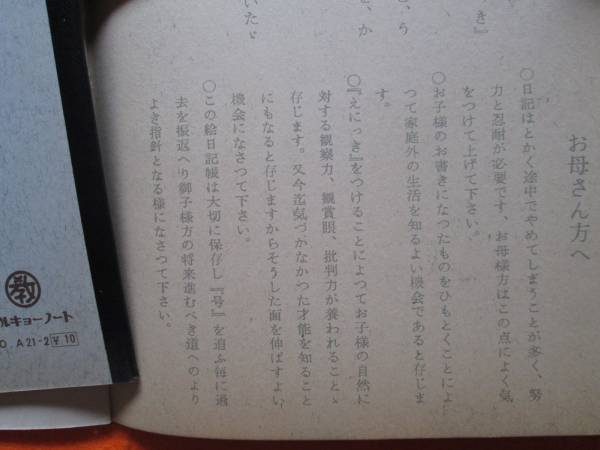 き』
、う
、か
いたゞ
お母さん方へ
○日記はとかく途中でやめてしまうことが多く、努
力と忍耐が必要です、お母様方はこの点によく気
をつけて上げて下さい。
○お子様のお書きになつたものをひもとくことによ
つて家庭外の生活を知るよい機会であると存じま
す。
○『えにっき』をつけることによつてお子様の自然に
対する観察力、観賞眼、批判力が養われることゝ
存じます。又今迄気づかなかつた才能を知ること
にもなると存じますからそうした面を伸ばすよい
機会になさつて下さい。
○この絵日記帳は大切に保存し『号』を追ふ毎に過
去を振返へり御子様方の将来進むべき道へのより
よき指針となる様になさつて下さい。
教
ルキョーノート
O. A21-2 ¥10